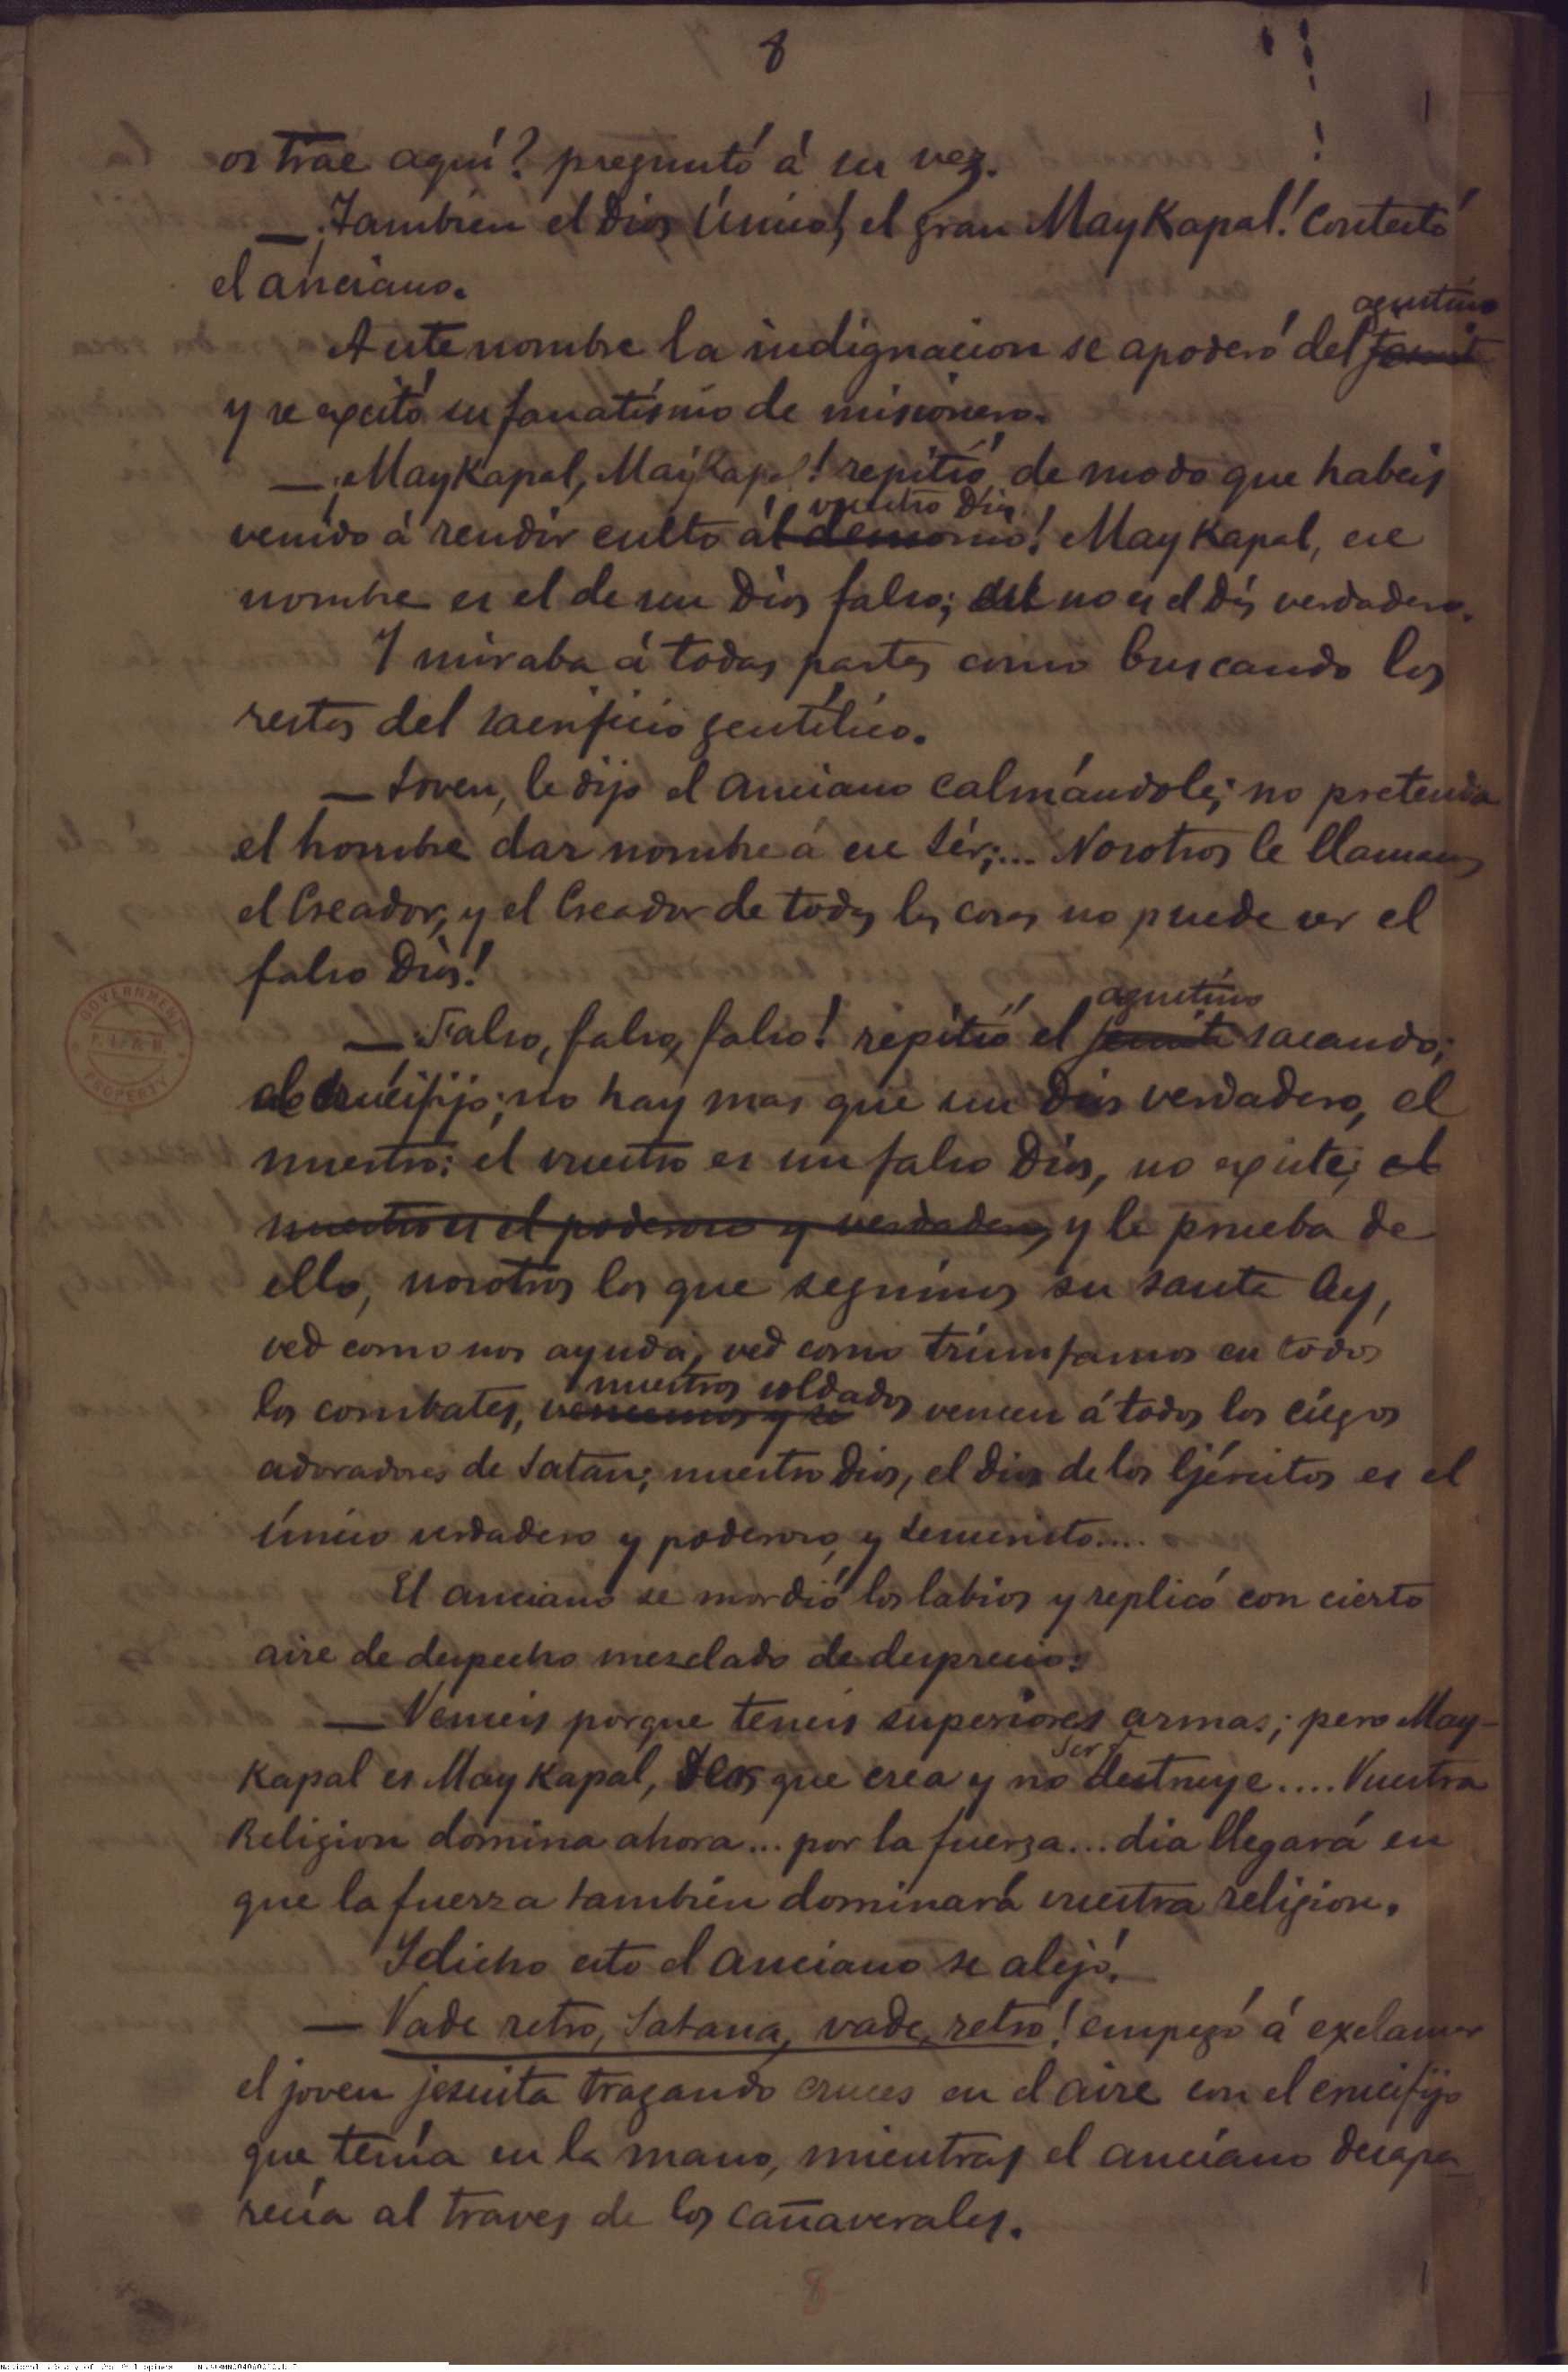 8
os trae aquí? preguntó á su vez.
—¡Tambien el Dios Único, el gran MayKapal! Contestó
el anciano.
agustino
Ante nombre la indignacion se apoderó del jesuit
y se exitó su fanatismo de misionero.
—¡MayKapal, MayKapal! repitió, de modo que habeis
vuestro Dios
venido á rendir culto ál demonio! MayKapal, ese
nombre es el de un Dios falso; no es el Dios verdadero.
Y miraba á todas partes como buscando los
restos del sacrificio gentílico.
—Joven, le dijo el anciano calmándole; no pretenda
el hombre dar nombre á ese Sér;... Nosotros le llamamos
el Creador, y el Creador de todas las cosas no puede ser el
falso Dios!
agustino
—Falso, falso, falso! repitió el jesuita sacando;
crucifijo; no hay mas que un Dios verdadero, el
nuestro; el vuestro es un falso Dios, no existe; el
nuestro es el poderoso y verdadero, y la prueba de
ello, nosotros los que seguimos su santa ley,
ved como nos ayuda, ved como triumfamos en todos
nuestros soldados
los combates, vencemos y se vencen á todos los ciegos
adoradores de Satan; nuestro Dios, el Dios de los Ejércitos es el
Único verdadero y poderoso, y Jesucristo....
El anciano se mordió los labios y replicó con cierto
aire de despecho mezclado de desprecio:
—Venceis porque teneis superiores armas; pero May-
Ser
Kapal es MayKapal, Dios que crea y no destruye.... Vuestra
Religion domina ahora... por la fuerza... dia llegará en
que la fuerza tambien dominará vuestra religion.
Y dicho esto el anciano se alejó.
—Vade retro, Satana, vade, retro! empezó á exclamar
el joven jesuita trazando cruces en el aire con el crucifijo
que tenía en la mano, mientras el anciano desapa-
recía al traves de los cañaverales.
8
GOVERNMENT
PROPERTY
National Library of the Philippines